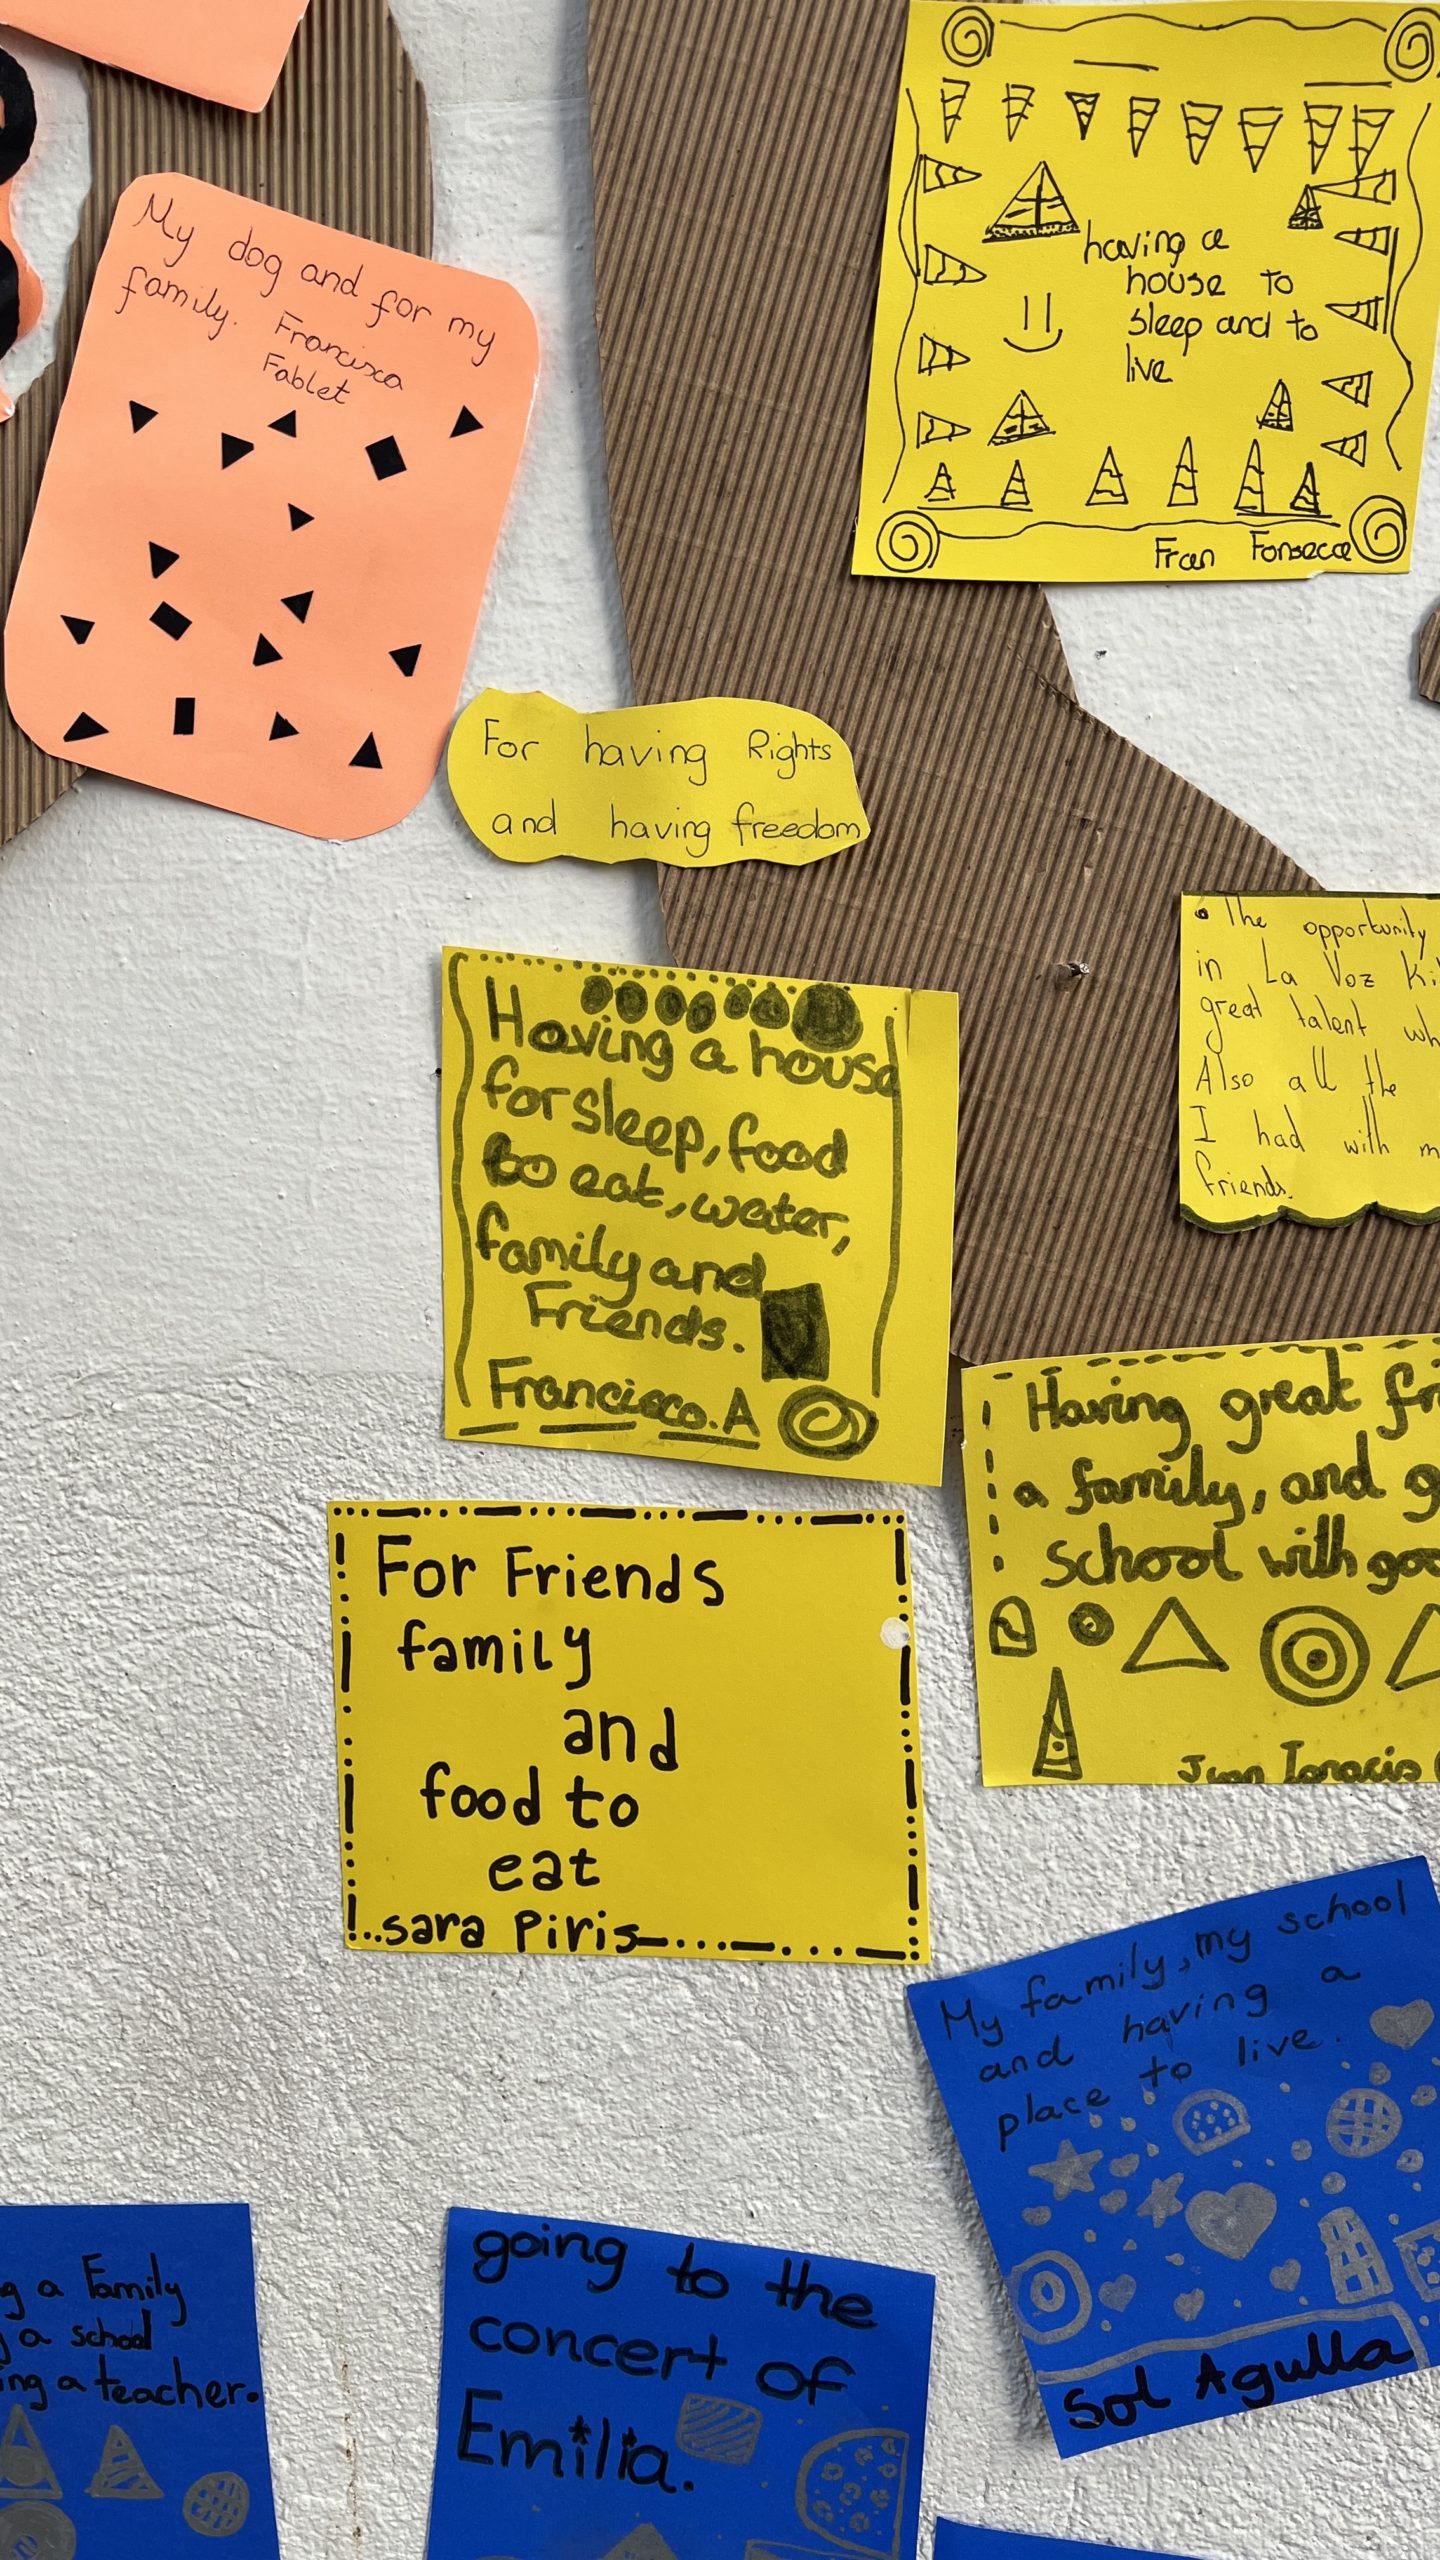 My dog and for my
family. Francisca
Fablet
having a
house to
sleep and to
live
Fran Fonseca
For having Rights
and having freedom
• The opportunity
in La Voz
great talent
Also all the
I had with
friends.
Having a house
for sleep, food
to eat, water,
family and
Friends.
Francisco. A
Having great
a family, and
School with
Juan Ignacio
For Friends
family
and
food to
eat
sara Piris
My family, my school
and having a
place to live.
Sol Agulla
a Family
a school
a teacher.
going to the
concert of
Emilia.